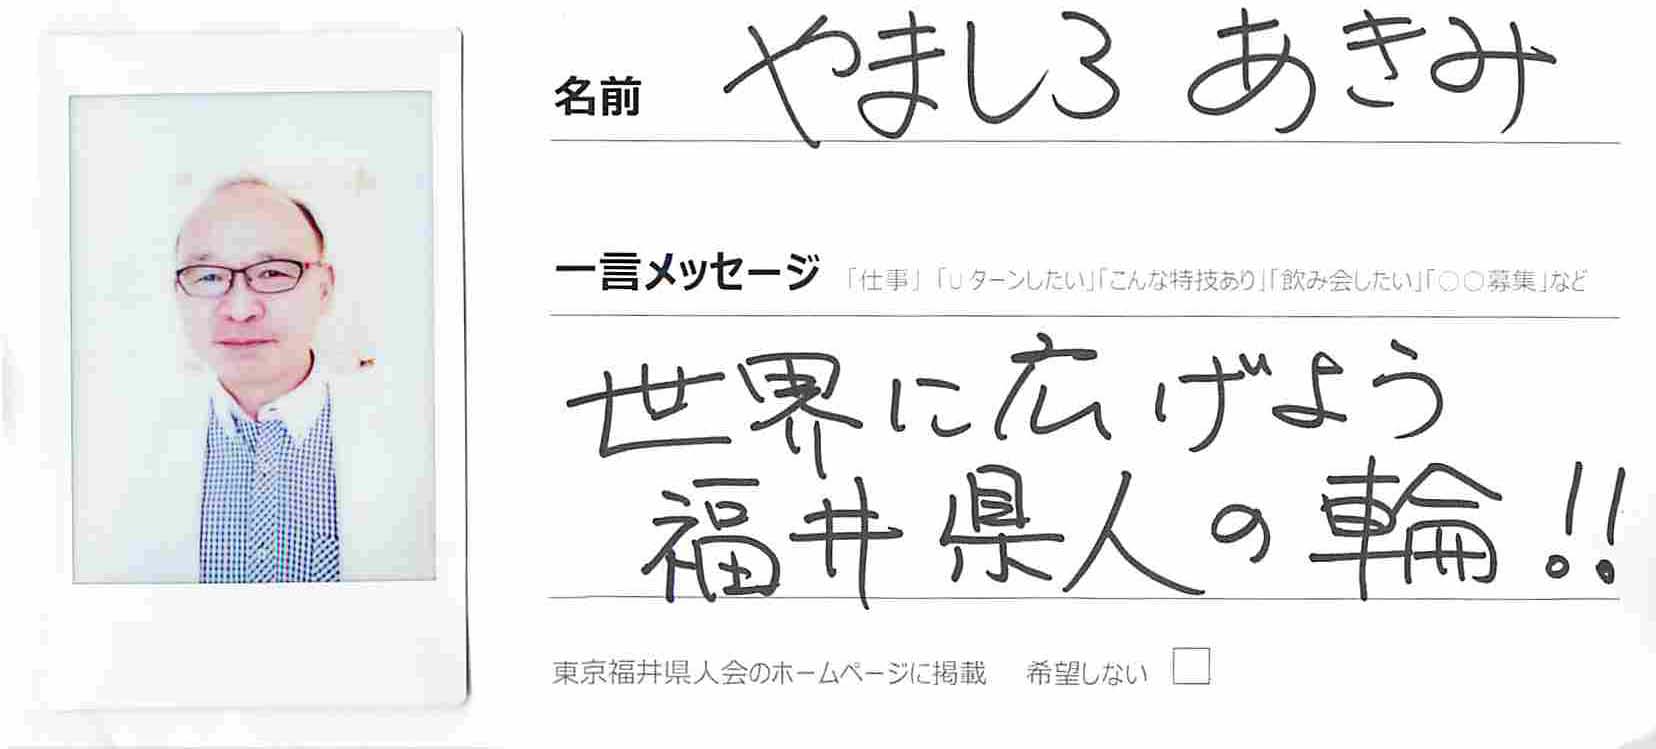 名前 やましろ あきみ
一言メッセージ 「仕事」「Uターンしたい」「こんな特技あり」「飲み会したい」「〇〇募集」など
世界に広げよう
福井県人の輪!!
東京福井県人会のホームページに掲載 希望しない □